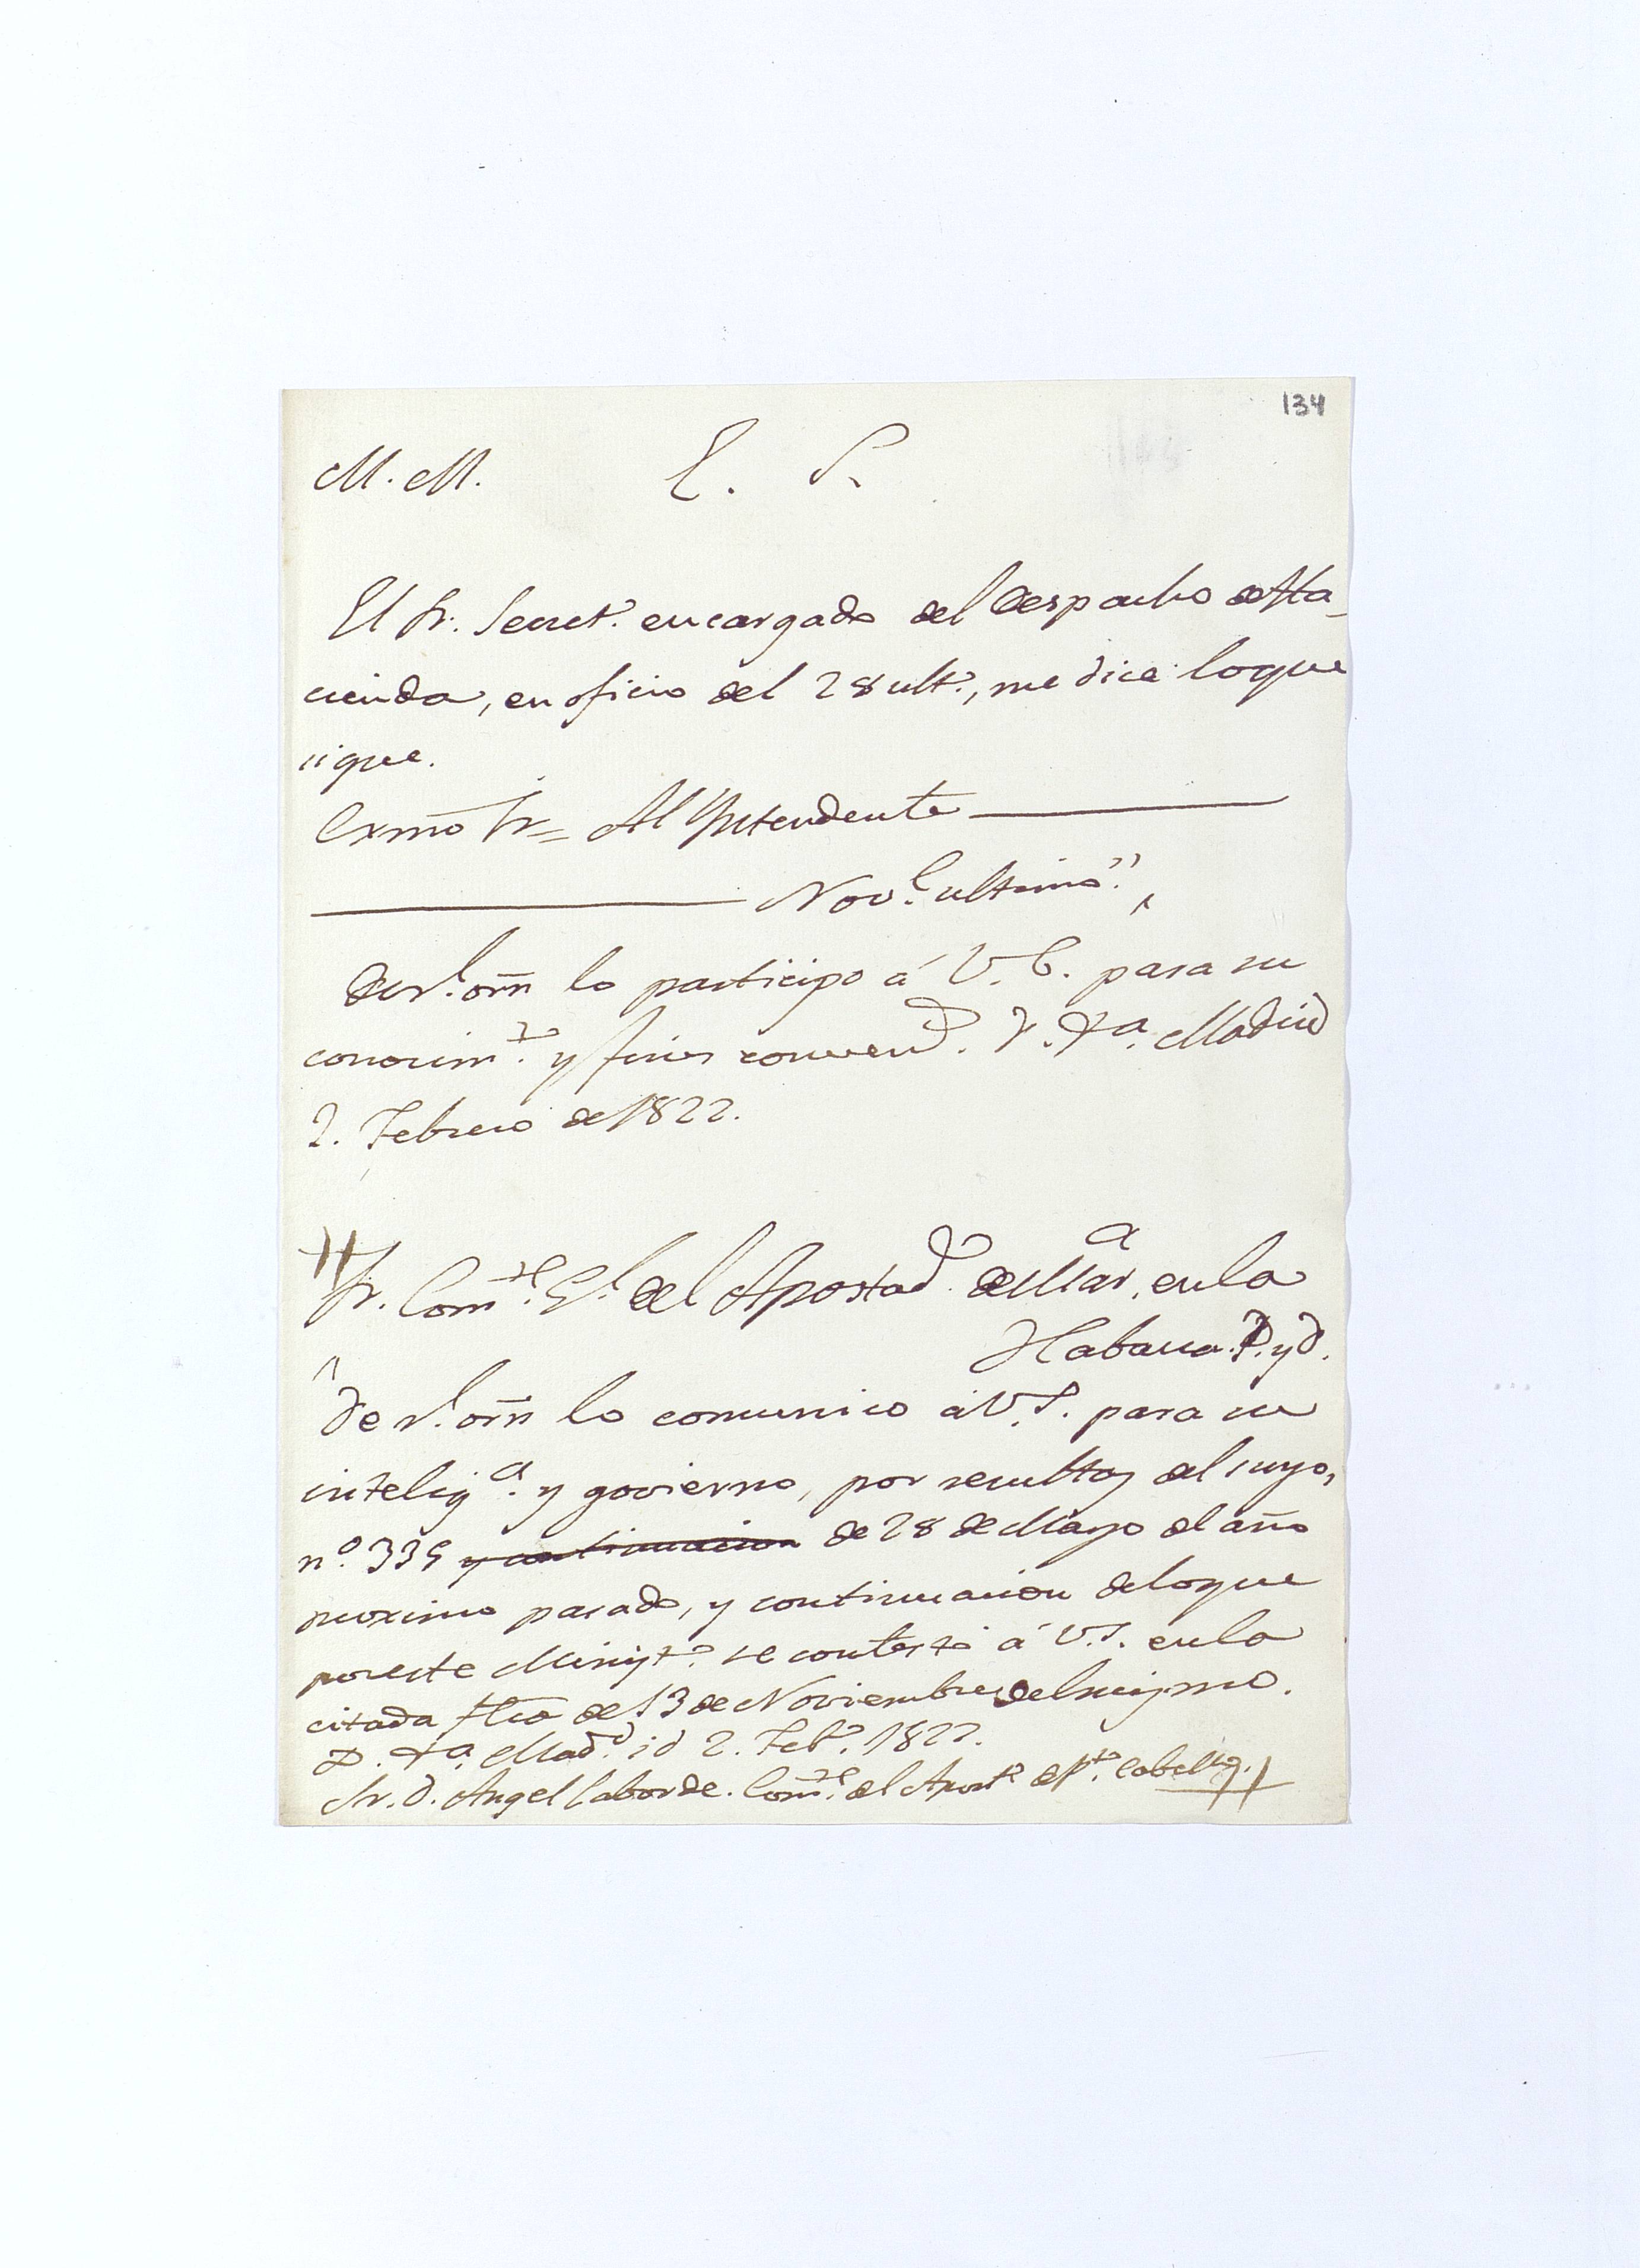 134
M. M. E. S.
El Sr. Secret.o encargado del Despacho de Ha-
cienda, en oficio del 28 ult.o, me dice loque
sigue.
Exmo Sr = Al Yntendente
Nov.e ultimo."
De r.l orn lo participo á V.E. para su
conocim.to y fines conven.d D. Ga. Madrid
2. Febrero de 1822.
Sr. Com.te G.l del Apostad.o de Mar.a en la
Habana. P. y D.
De r.l orn lo comunico á V.S. para su
intelig.a y govierno, por resultas del suyo,
n.o 339 y continuacion de 28 de Mayo del año
proximo pasado, y continuacion deloque
poreste Minist.o se contestó á V.S. enla
citada fha de 13 de Noviembre delmismo.
D. Ga. Mad.d id 2. Feb.o 1822.
Sr. D. Angel Laborde. Com.te del Apost.o de P.to Cabello.